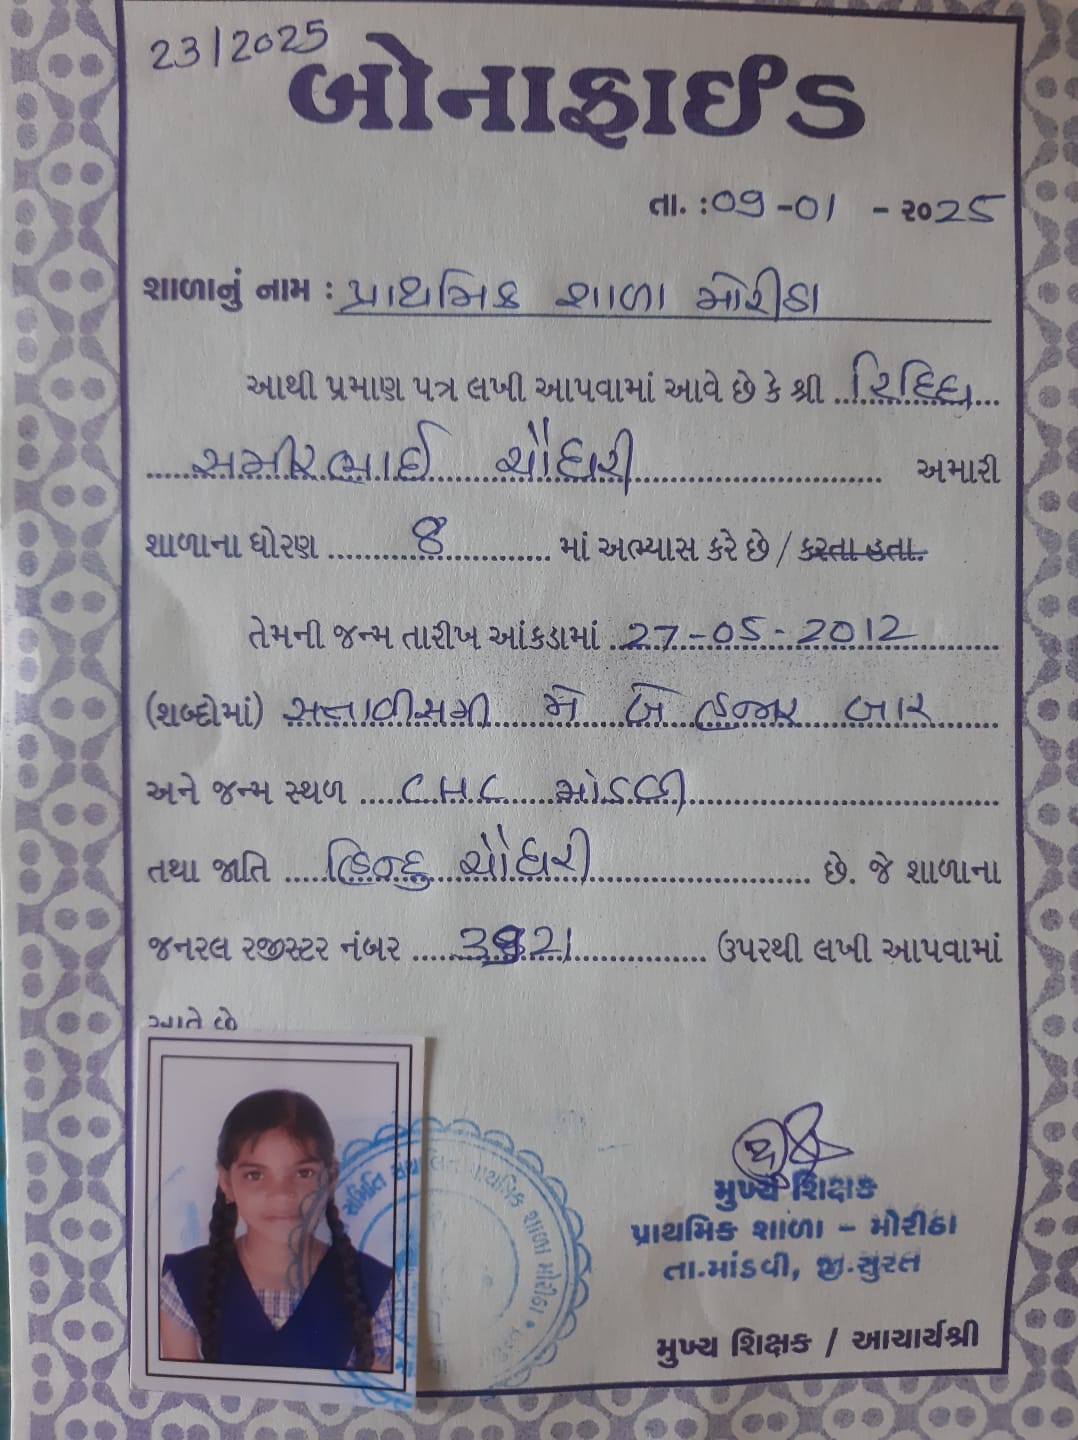 23/2025
બોનાફાઈડ
તા. : 09-01 - ૨૦25
શાળાનું નામ : પ્રાથમિક શાળા મોરીઠા
આથી પ્રમાણ પત્ર લખી આપવામાં આવે છે કે શ્રી રિધ્ધિ
સમીરભાઈ ચૌધરી અમારી
શાળાના ધોરણ 8 માં અભ્યાસ કરે છે / કરતા હતા.
તેમની જન્મ તારીખ આંકડામાં 27-05-2012
(શબ્દોમાં) સત્તાવીસમી મે બે હજાર બાર
અને જન્મ સ્થળ CHC માંડવી
તથા જાતિ હિન્દુ ચૌધરી છે. જે શાળાના
જનરલ રજીસ્ટર નંબર ઉપરથી લખી આપવામાં
આવે છે
મુખ્ય શિક્ષક
પ્રાથમિક શાળા - મોરીઠા
તા.માંડવી, જી.સુરત
મુખ્ય શિક્ષક / આચાર્યશ્રી
સમિતિ સંચાલિત પ્રાથમિક શાળા મોરીઠા